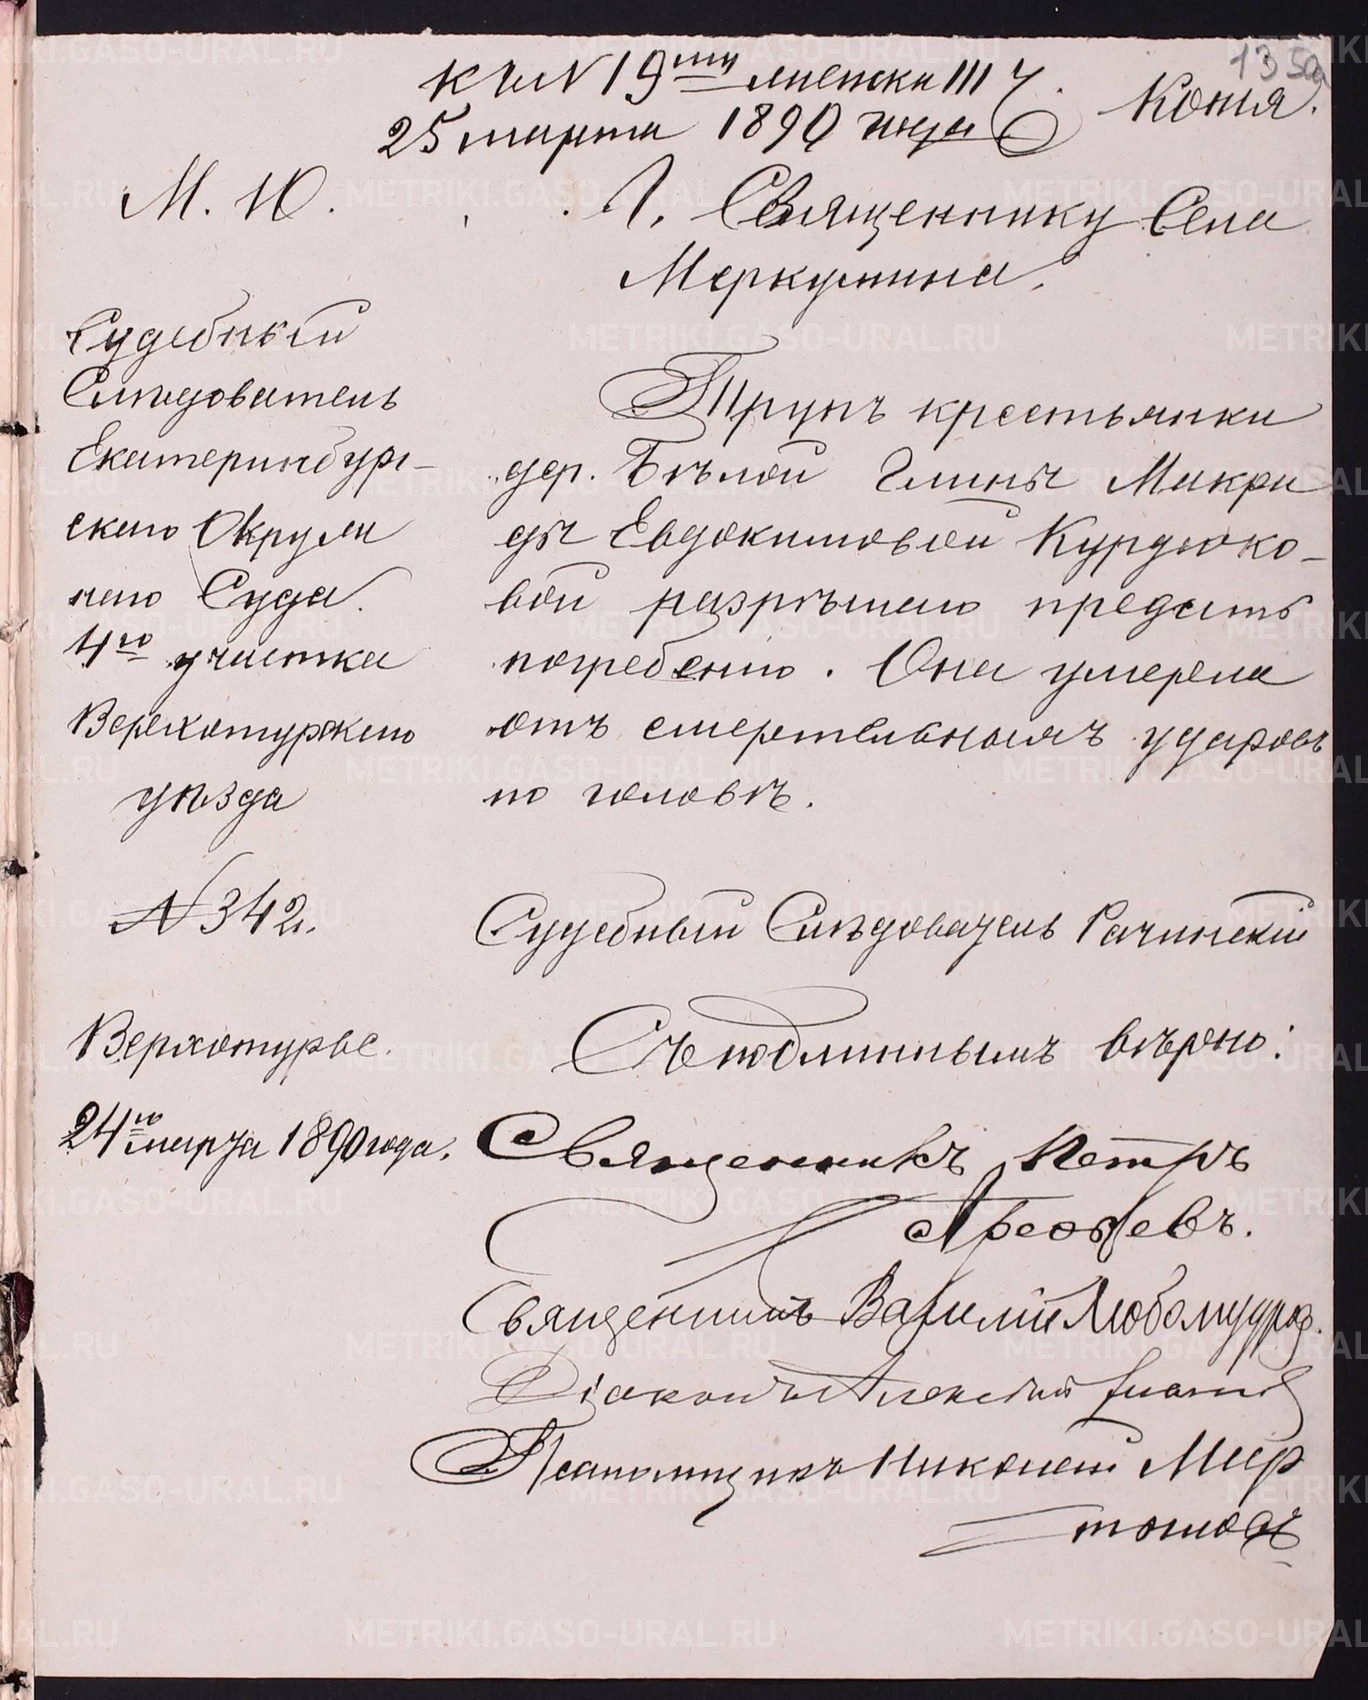 К № 19му листка III ч.
25 марта 1890 года
Копія.
135
М. Ю.
Судебный
Слѣдователь
Екатеринбург-
скаго Окруж
наго Суда.
4го участка
Верхотурскаго
уѣзда
№ 342.
Верхотурье.
24го марта 1890 года.
Г. Священнику Села
Меркушина.
Трупъ крестьянки
дер. Бѣлой Глины Макри
ды Евдокимовой Курдюко-
вой разрѣшаю предать
погребенію. Она умерла
отъ смертельныхъ ударовъ
по головѣ.
Судебный Слѣдователь Рачинскій
Съ подлиннымъ вѣрно:
Священникъ Петръ
Арефьевъ.
Священникъ Василій Любомудровъ.
Діаконъ Алексій
Псаломщикъ Николай Мир
тововъ
METRIKI.GASO-URAL.RU